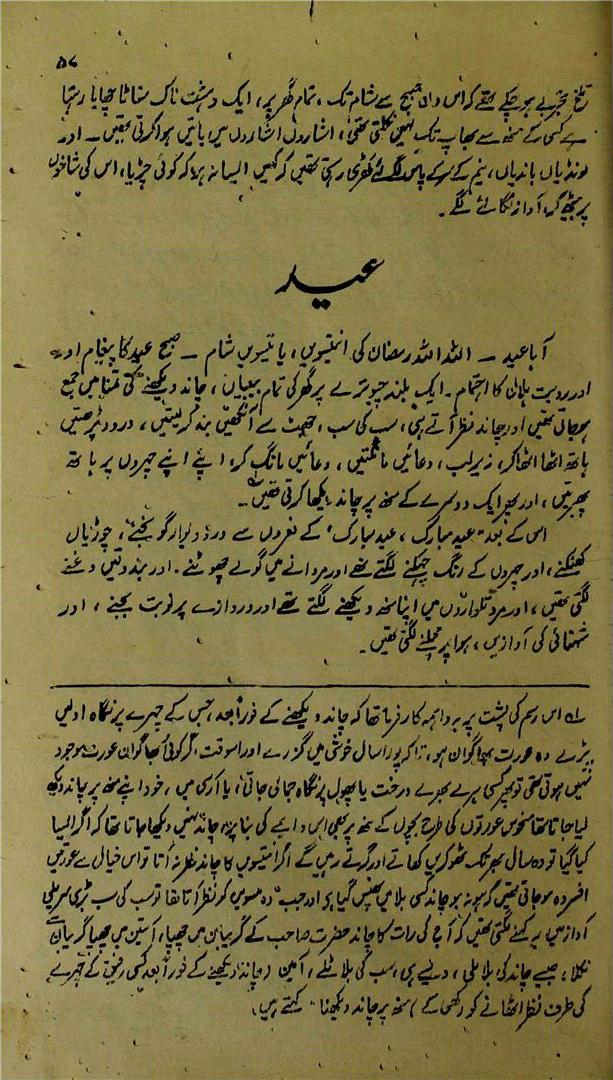 ۵۷
تلخ تجربے ہو چکے تھے کہ اس دن صبح سے شام تک، تمام گھر پر، ایک دہشت ناک سناٹا چھایا رہتا
ہے کسی کے منھ سے بھاپ تک نہیں نکلتی تھی، اشاروں اشاروں میں باتیں ہوا کرتی تھیں ۔ اور
لونڈیاں باندیاں، نیم کے نیچے بانس لئے کھڑی رہتی تھیں کہ کہیں ایسا نہ ہو کہ کوئی چڑیا، اس کی شاخوں
پر بیٹھ کر، آواز نکالنے لگے ۔
عید
آہا عید ۔ اللہ اللہ رمضان کی انتیسویں، یا تیسویں شام ۔ صبح عید کا پیغام اور
اور رویت ہلال کا اہتمام ۔ ایک بلند چبوترے پر گھر کی تمام بیبیاں، چاند دیکھنے کی تمنا میں جمع
ہو جاتی تھیں اور چاند نظر آتے ہی، سب کی سب، جھٹ سے آنکھیں بند کر لیتیں، درود پڑھتیں
ہاتھ اٹھا اٹھا کر، زیر لب، دعائیں مانگتیں، دعائیں مانگ کر، اپنے اپنے چہروں پر ہاتھ
پھیرتیں، اور پھر ایک دوسرے کے منھ پر چاند دیکھا کرتی تھیں ۔
اس کے بعد "عید مبارک، عید مبارک" کے نعروں سے در و دیوار گونجنے، چوڑیاں
کھنکنے، اور چہروں کے رنگ چمکنے لگتے تھے اور مردانے میں گولے چھوٹنے ۔ اور بندوقیں دغنے
لگتی تھیں، اور مرد تلواروں میں اپنا منھ دیکھنے لگتے تھے اور دروازے پر نوبت بجنے، اور
شہنائی کی آوازیں، ہوا پر مچلنے لگتی تھیں ۔
لے اس رسم کی پشت پر یہ واہمہ کار فرما تھا کہ چاند دیکھنے کے فوراً بعد، جس کے چہرے پر نگاہ اولیں
پڑے وہ عورت بھاگوان ہو، تاکہ پورا سال خوشی میں گزرے اور اس وقت، اگر کوئی بھاگوان عورت موجود
نہیں ہوتی تھی تو پھر کسی ہرے بھرے درخت یا پھول پر نگاہ جمائی جاتی، یا آرسی میں، خود اپنے منھ پر چاند دیکھ
لیا جاتا تھا منحوس عورتوں کی طرح بچوں کے منھ پر بھی اس واہمے کی بنا پر، چاند نہیں دیکھا جاتا تھا کہ اگر ایسا
کیا گیا تو وہ سال بھر تک ٹھوکریں کھاتے اور گرتے رہیں گے اگر انتیسویں کا چاند نظر نہ آتا تو اس خیال سے عورتیں
افسردہ ہو جاتی تھیں کہ ہو نہ ہو چاند کسی بلا میں پھنس گیا ہو اور جب وہ تیسویں کو نظر آتا تھا تو سب کی سب بڑی سریلی
آواز میں یہ کہنے لگتی تھیں کہ آج کی رات کا چاند حضرت صاحب کے گریبان میں چھپا، آستین میں چھپا گریبان سے
نکلا، جیسے چاند کی بلا ٹلی، ویسے ہی، سب کی بلا ٹلے، آمین (چاند دیکھنے کے فوراً بعد کسی رفیق کے چہرے
کی طرف نظر اٹھانے کو، کسی کے) منھ پر چاند دیکھنا" کہتے ہیں،